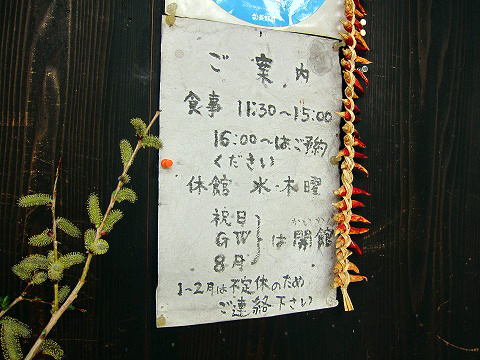 ご案内
食事 11:30〜15:00
16:00〜はご予約
ください
休館 水・木曜
祝日
GW
8月
は開館
かいかん
1〜2月は不定休のため
ご連絡下さい